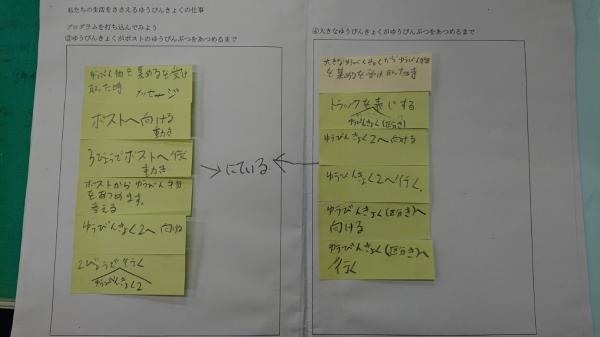 私たちの生活をささえるゆうびんきょくの仕事
プログラムを打ち込んでみよう
②ゆうびんきょくがポストのゆうびんぶつをあつめるまで
ゆうびん物を集めるを受け
取った時
メッセージ
ポストへ向ける
動き
3びょうでポストへ行く
動き
ポストからゆうびん物
をあつめます。
言える
ゆうびんきょく2へ向ける
2びょうで行く
ゆうびんきょく2
にている
④大きなゆうびんきょくがゆうびんぶつをあつめるまで
大きなゆうびんきょくからゆうびん物
を集めるを受け取った時
トラックを表じする
ゆうびんきょく(区分き)
ゆうびんきょく2へ向ける
ゆうびんきょく2へ行く。
ゆうびんきょく(区分き)へ
向ける
ゆうびんきょく(区分き)へ
行く